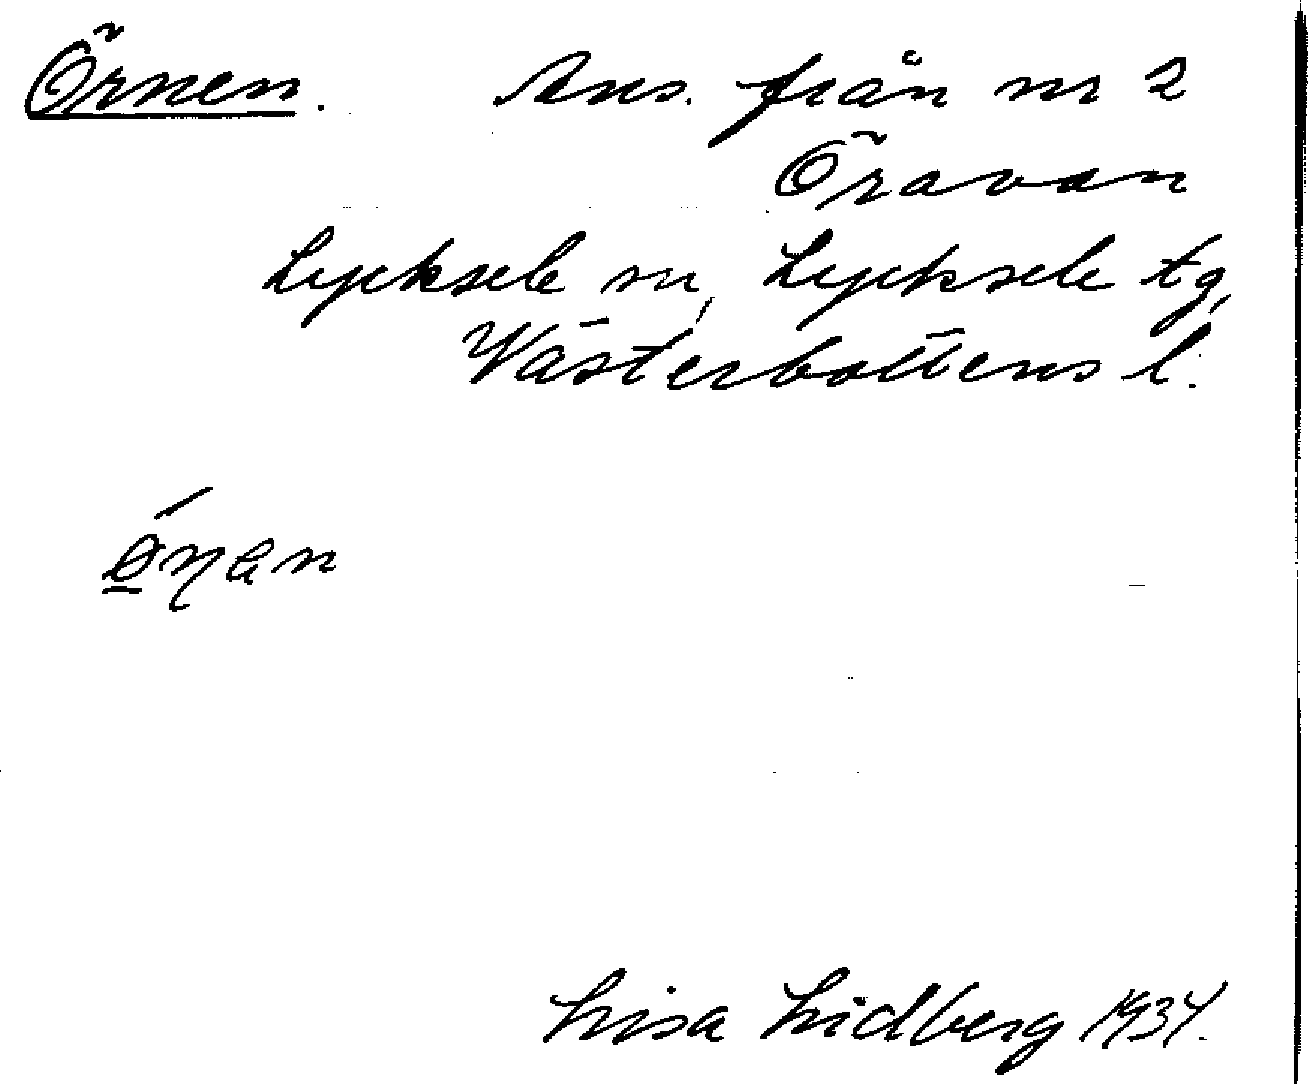 Örnen. Ans. från nr 2
Öravan
Lycksele sn, Lycksele tg,
Västerbottens l.
Lisa Lidberg 1934.